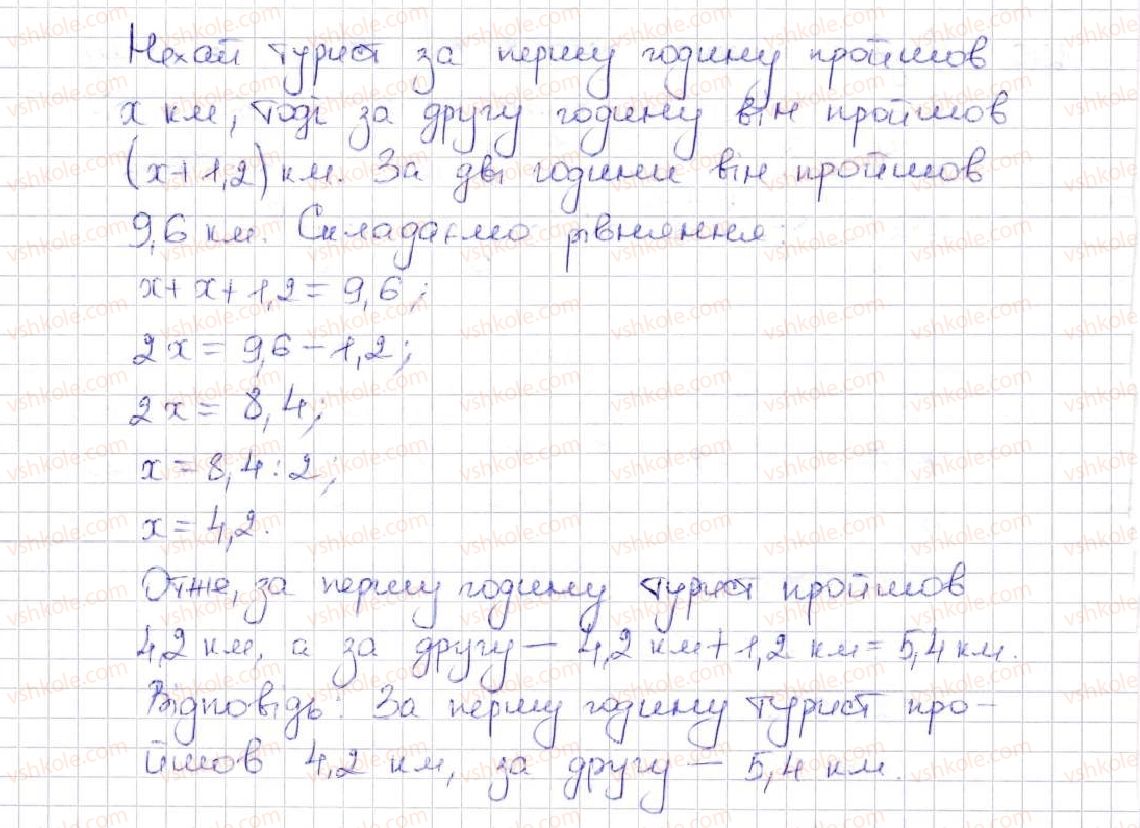 Нехай турист за першу годину пройшов
x км, тоді за другу годину він пройшов
(x+1,2) км. За дві години він пройшов
9,6 км. Складаємо рівняння:
x+x+1,2=9,6;
2x=9,6-1,2;
2x=8,4;
x=8,4:2;
x=4,2.
Отже, за першу годину турист пройшов
4,2 км, а за другу — 4,2 км+1,2 км=5,4 км.
Відповідь: За першу годину турист про-
йшов 4,2 км, за другу — 5,4 км.